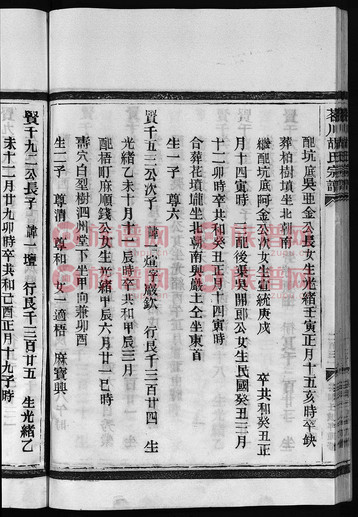 茶川胡氏宗譜
配坑底吳亜金公長女生光緒壬寅正月十五亥時卒缺
葬柏樹墳坐北朝南
繼配坑底阿金公次女生宣統庚戌 卒共和癸丑正
月十四寅時 配後栗吳開郎公女生民國癸丑三月
十二卯時卒共和癸丑正月十四寅時
合葬花墳壠坐北朝南與嚴土仝坐東首
生一子 尊六
賢千五三公次子 諱一煊字嚴欽 行良千三百廿四 生
光緒乙未十月十一辰時卒共和甲辰三月
配梧盯麻順錢公女生光緒甲辰六月廿一巳時
壽穴白坣樹泗州堂下坐甲向兼卯酉
生二子 尊清 尊和 女一適梧 麻寶興
賢千九二公長子 諱一壇 行良千三百廿五 生光緒乙
未十二月廿九卯時卒共和己酉正月十九子時